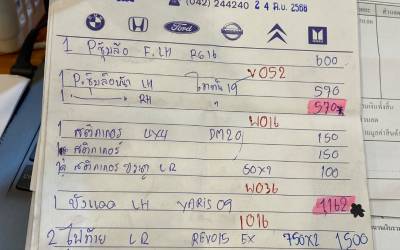 (042) 244240 24 มี.ย. 2568
Ford
1 P.ซุ้มล้อ F. LH R616 600
V052
1 P.ซุ้มล้อหน้า LH ไททัน 19 570
1 RH 570
W016
1 สติกเกอร์ 4X4 DM20 150
สติกเกอร์ 150
สติกเกอร์ LR 50X2 100
W036
1 LH YARIS 09 1162
1016
2 ไฟท้าย LR REVO15 EX 750X2 1500